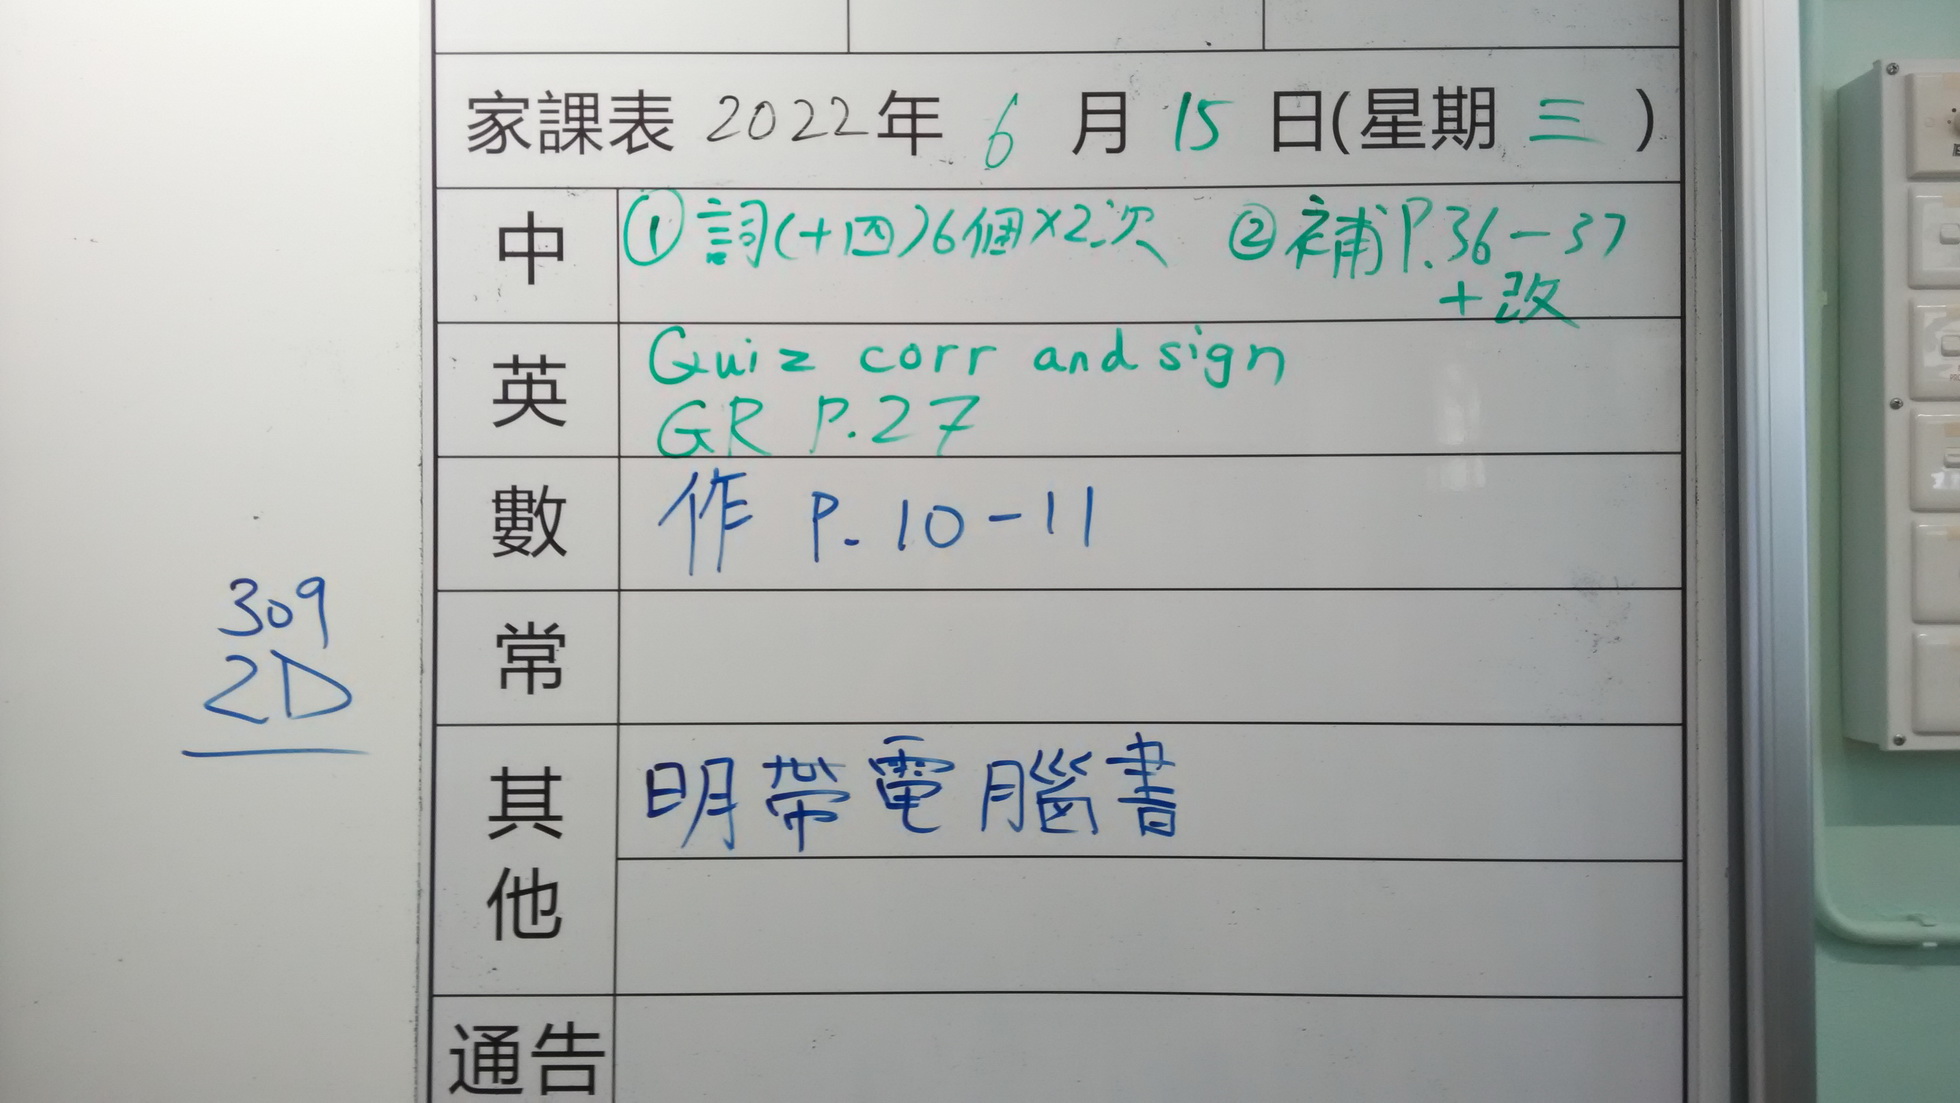 家課表 2022年 6 月 15 日(星期 三 )
中 ①詞(十四)6個×2次 ②補P.36-37
+改
英 Quiz corr and sign
GR P.27
數 作 P. 10-11
309
2D
常
其他 明帶電腦書
通告